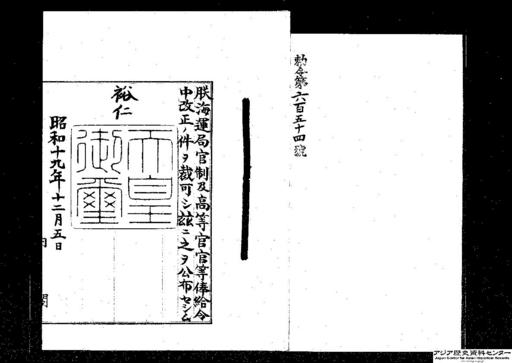 勅令第六百五十四號
朕海運局官制及高等官官等俸給令
中改正ノ件ヲ裁可シ茲ニ之ヲ公布セシム
裕仁
天皇
御璽
昭和十九年十二月五日
内
閣
アジア歴史資料センター
Japan Center for Asian Historical Records